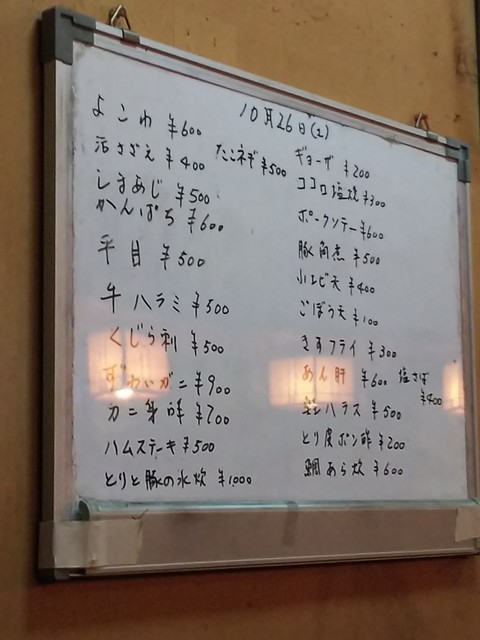 10月26日(土)
よこわ ¥600
活さざえ ¥400
たこネギ ¥500
しまあじ ¥500
かんぱち ¥600
平目 ¥500
牛ハラミ ¥500
くじら刺 ¥500
ずわいガニ ¥900
カニ身 ¥700
ハムステーキ ¥500
とりと豚の水炊 ¥1,000
ギョーザ ¥200
ココロ塩焼 ¥300
ポークソテー ¥600
豚角煮 ¥500
小エビ天 ¥400
ごぼう天 ¥100
きすフライ ¥300
あん肝 ¥600
塩さば ¥400
ハラス ¥500
とり皮ポン酢 ¥200
鯛あら炊 ¥600